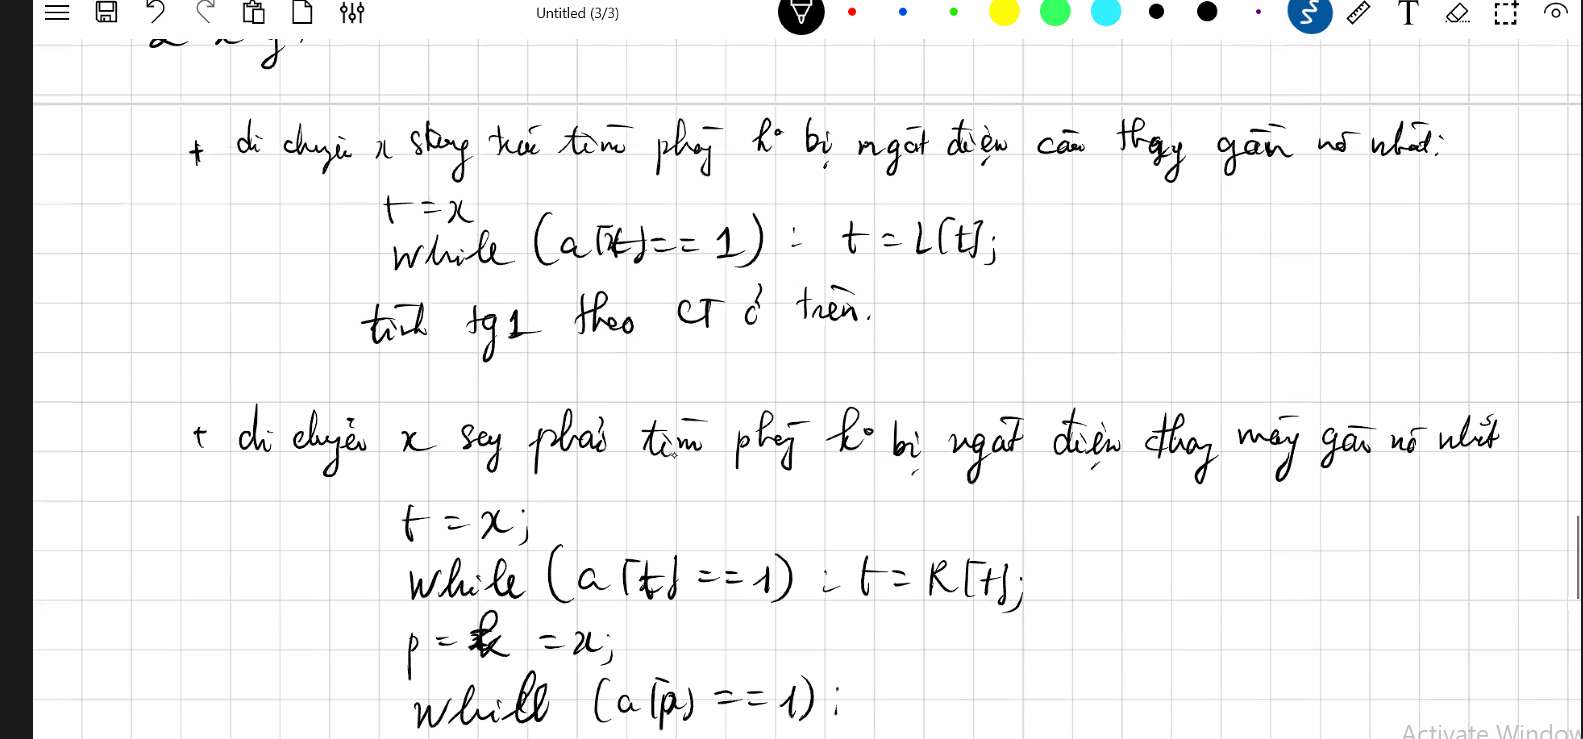 Untitled (3/3)
+ di chuyển x sang trái tìm phòng ko bị ngắt điện cần thay gần nó nhất:
t = x
while (a[t] == 1) : t = L[t];
tính tg1 theo CT ở trên.
+ di chuyển x sang phải tìm phòng ko bị ngắt điện thay máy gần nó nhất
t = x;
while (a[t] == 1) : t = R[t];
p = = x;
while (a[p] == 1) :
Activate Window